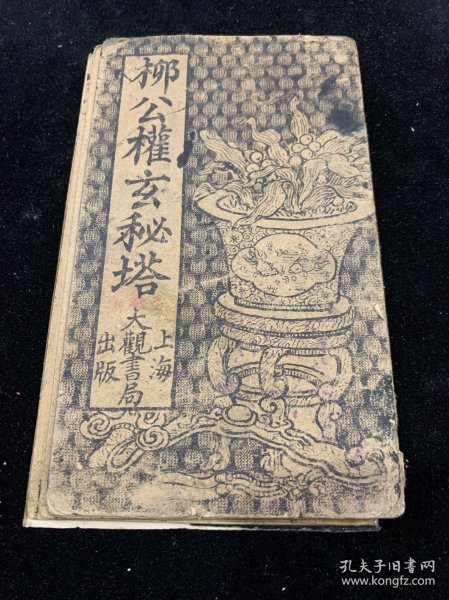 柳公權玄秘塔
上海
大觀書局
出版
孔夫子旧书网
www.kongfz.com